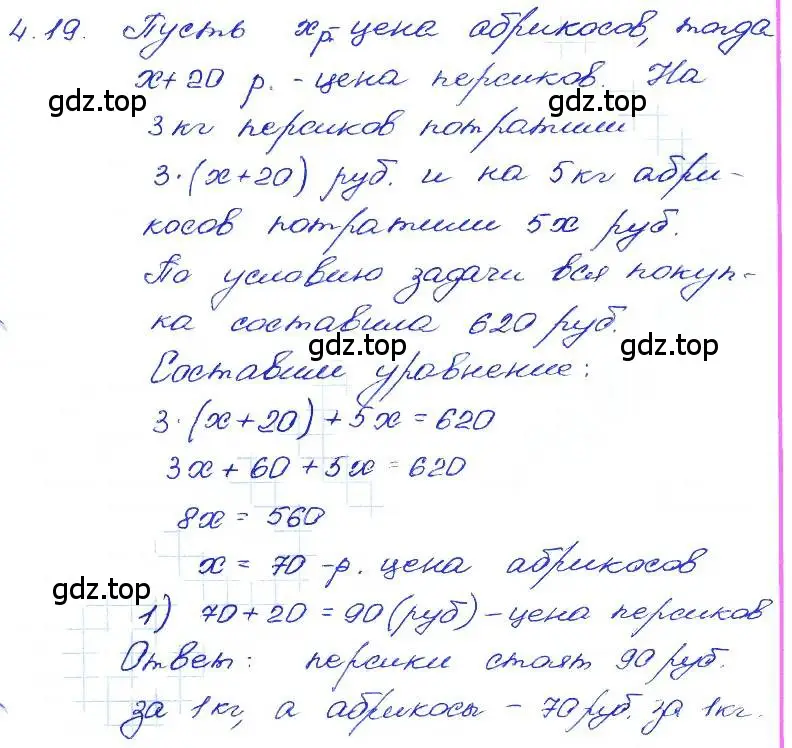 4.19. Пусть x р. - цена абрикосов, тогда
x+20 р. - цена персиков. На
gdz.top gdz.top
3 кг персиков потратили
3·(x+20) руб. и на 5 кг абри-
косов потратили 5x руб.
По условию задачи вся покуп-
ка составила 620 руб.
gdz.top gdz.top
Составим уравнение:
3·(x+20)+5x=620
3x+60+5x=620
8x=560
x=70 -р. цена абрикосов
gdz.top gdz.top
1) 70+20=90(руб)-цена персиков
Ответ: персики стоят 90 руб.
за 1 кг, а абрикосы - 70 руб. за 1 кг.